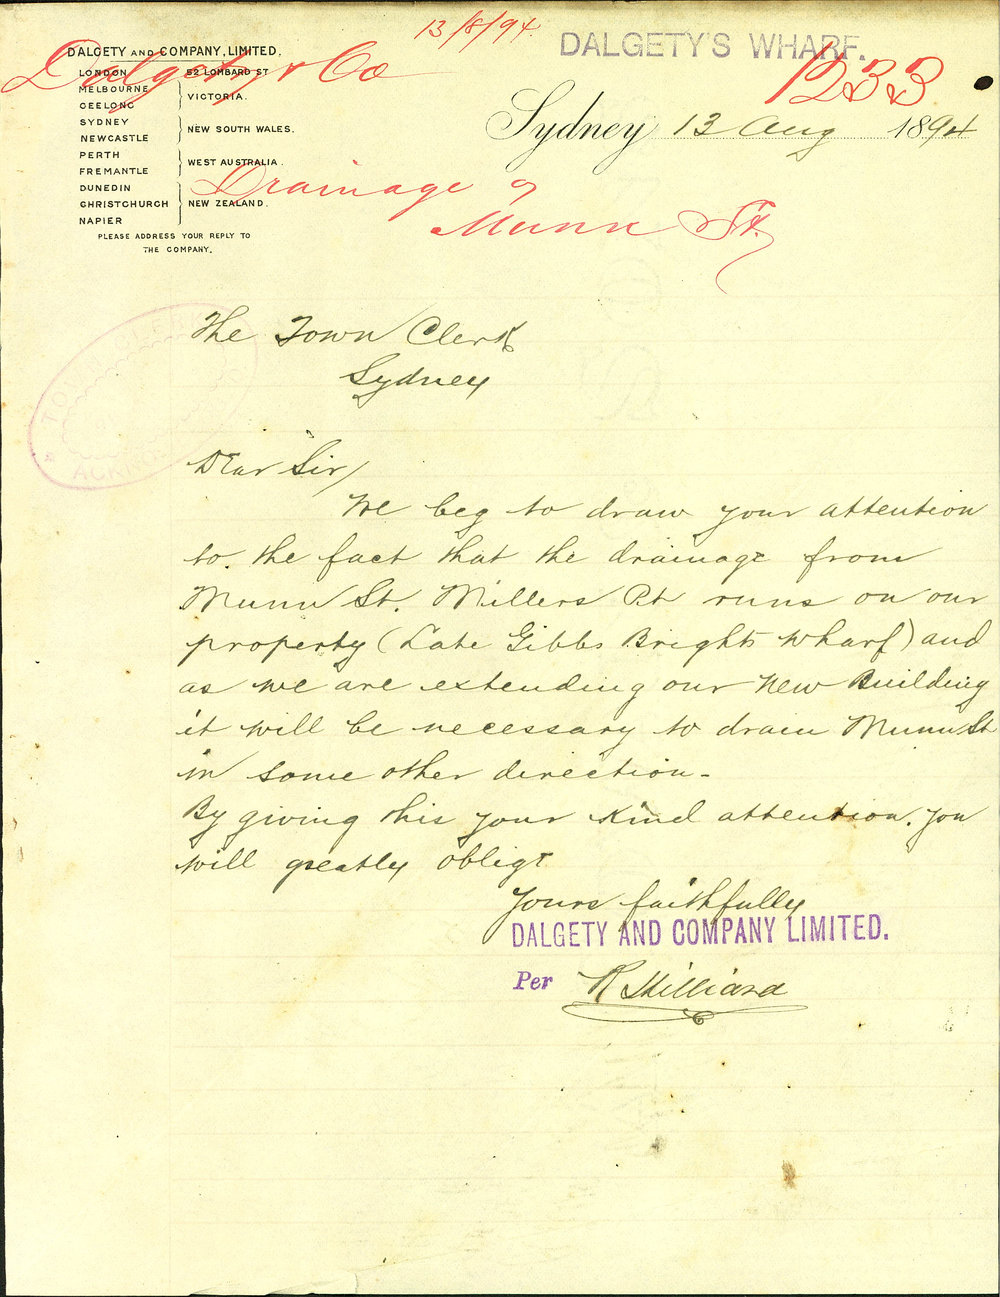 13/8/94.
DALGETY AND COMPANY, LIMITED.
DALGETY'S WHARF.
Dalgety & Co
1233
LONDON 52 LOMBARD ST
MELBOURNE
GEELONG
VICTORIA.
SYDNEY
NEWCASTLE
NEW SOUTH WALES.
PERTH
FREMANTLE
WEST AUSTRALIA.
DUNEDIN
CHRISTCHURCH
NAPIER
NEW ZEALAND.
PLEASE ADDRESS YOUR REPLY TO
THE COMPANY.
Sydney 13 Aug 1894
Drainage of
Munn St.
The Town Clerk
Sydney
TOWN CLERK
Dear Sir/
We beg to draw your attention
to. the fact that the drainage from
Munn St. Millers Pt runs on our
property (Late Gibbs Brights Wharf) and
as we are extending our New Building
it will be necessary to drain Munn St
in some other direction-
By giving this your kind attention. you
will greatly oblige
Yours faithfully
DALGETY AND COMPANY LIMITED.
Per